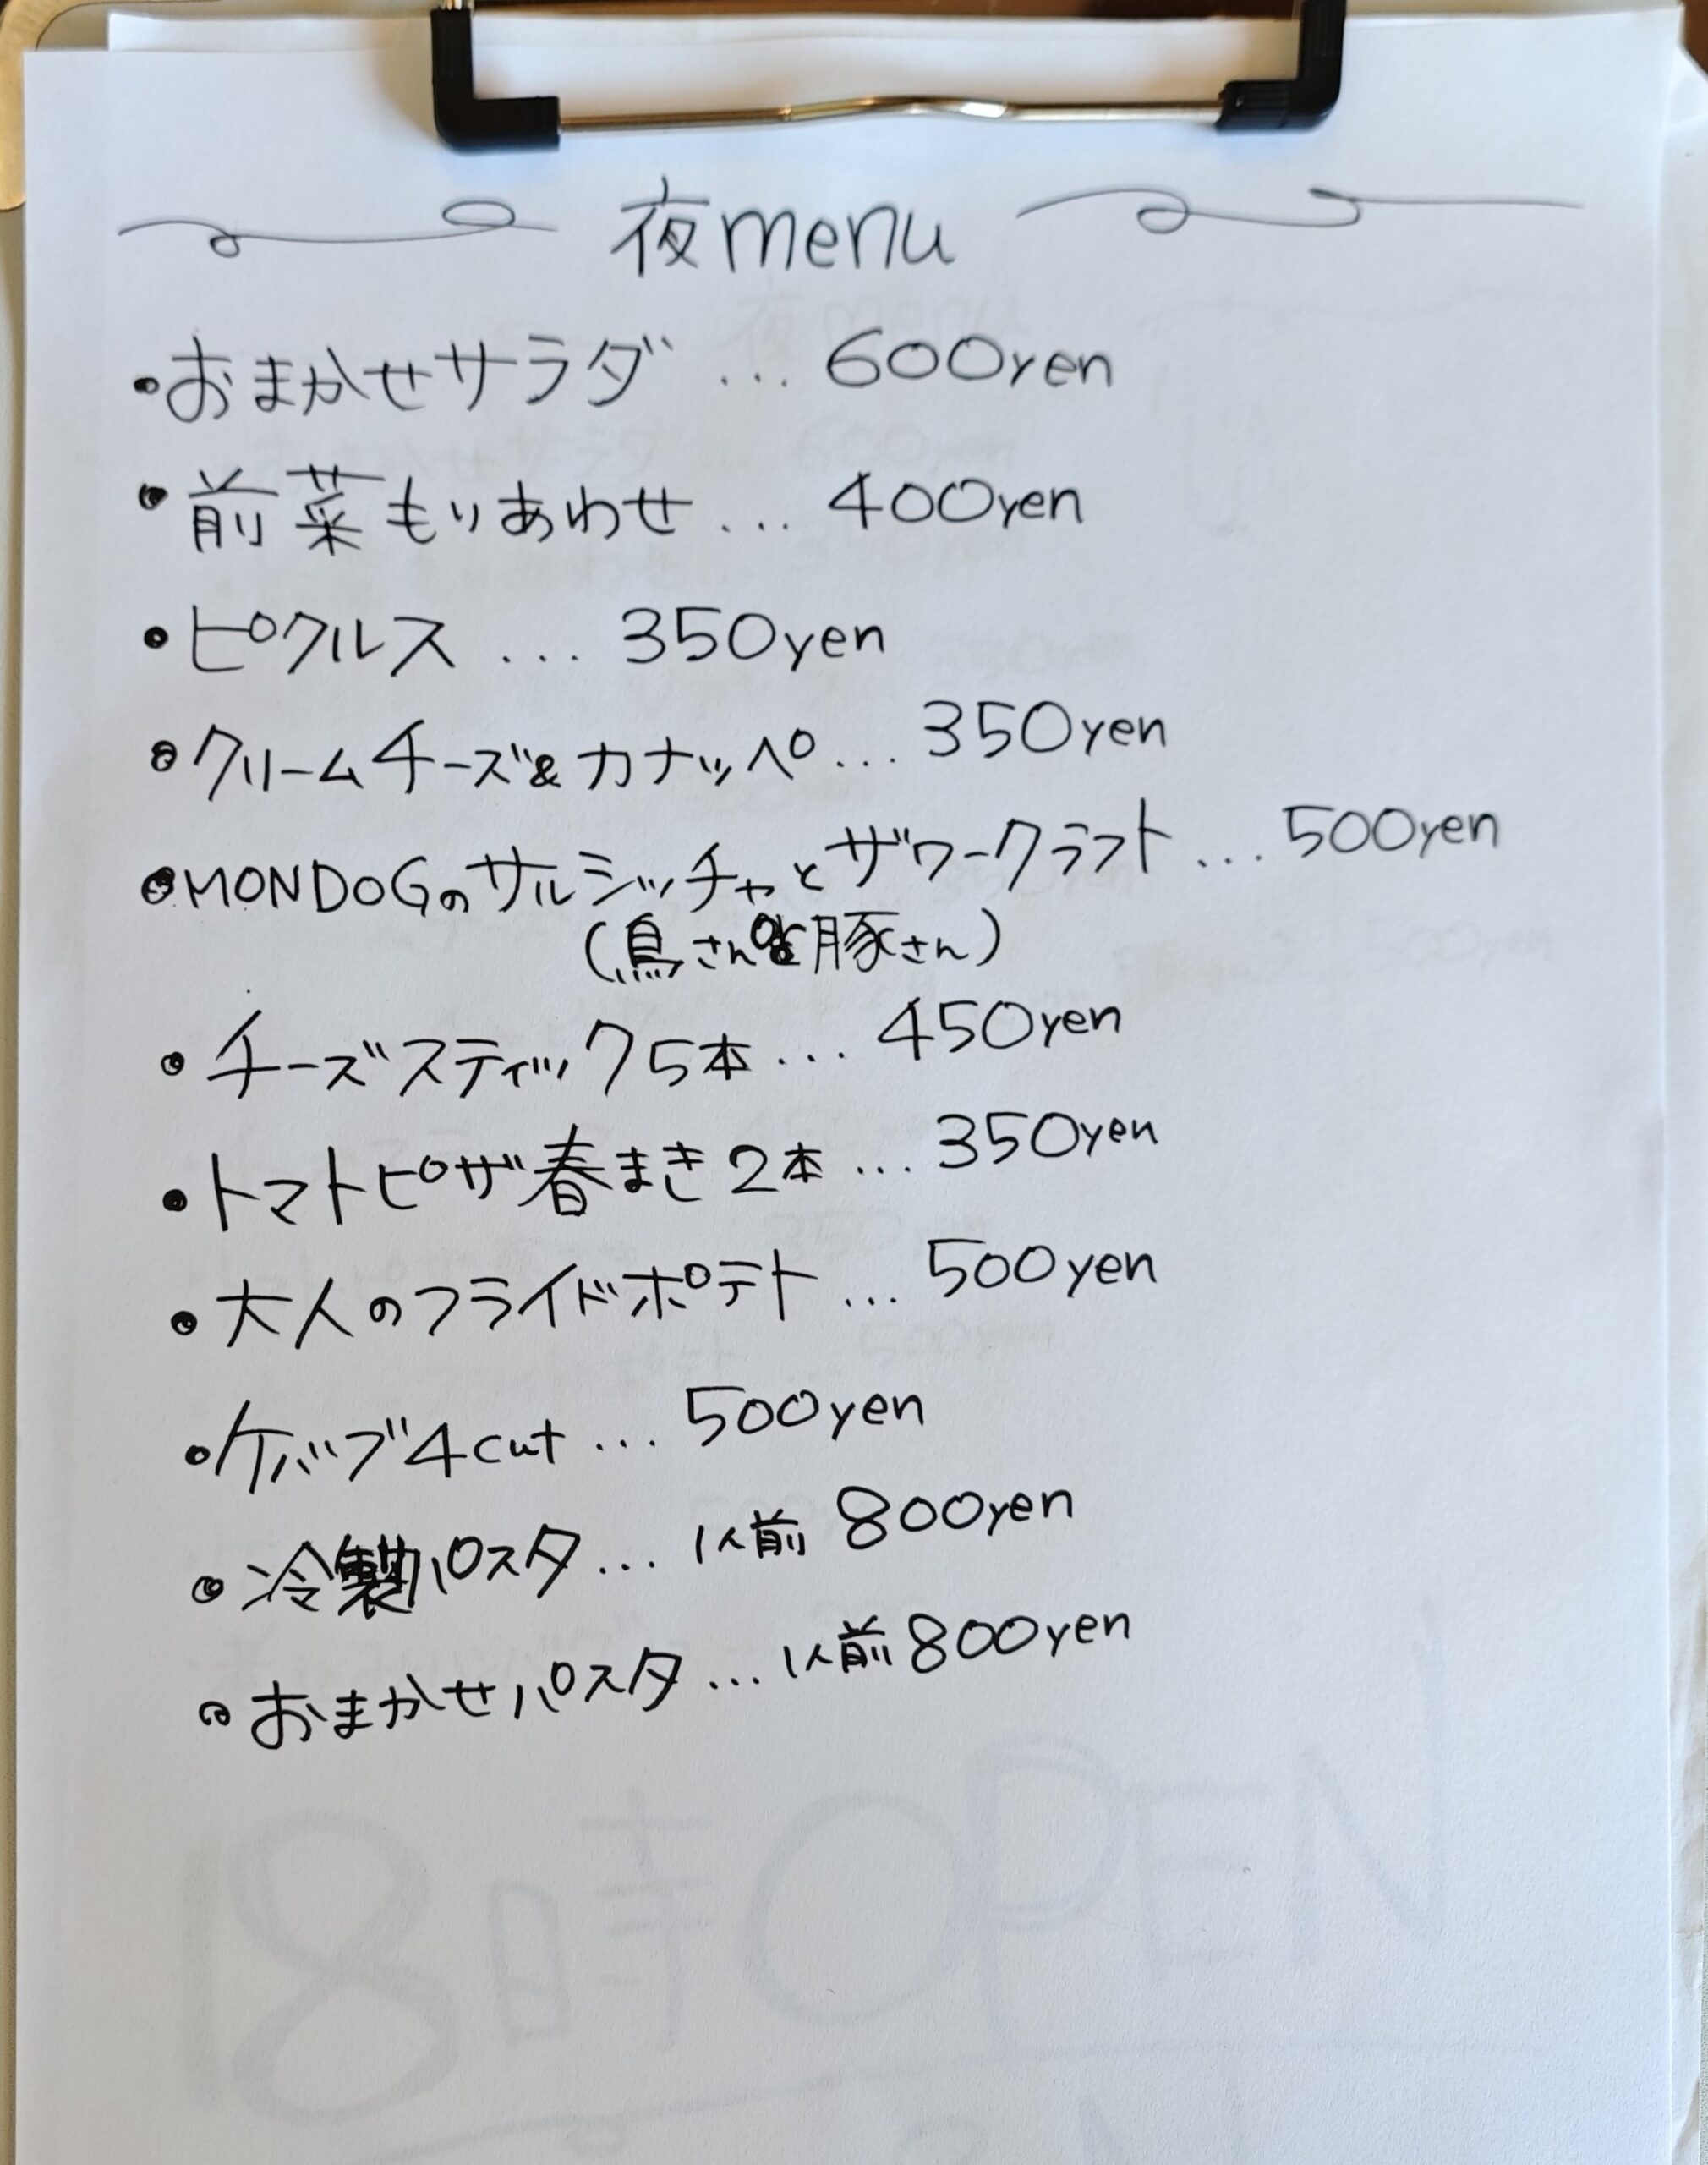 夜menu
・おまかせサラダ ... 600yen
・前菜もりあわせ ... 400yen
・ピクルス ... 350yen
・クリームチーズ&カナッペ ... 350yen
・MONDOGのサルシッチャとザワークラフト ... 500yen
(鳥さんと豚さん)
・チーズスティック5本 ... 450yen
・トマトピザ春まき2本 ... 350yen
・大人のフライドポテト ... 500yen
・ケバブ4cut ... 500yen
・冷製パスタ ... 1人前 800yen
・おまかせパスタ ... 1人前 800yen